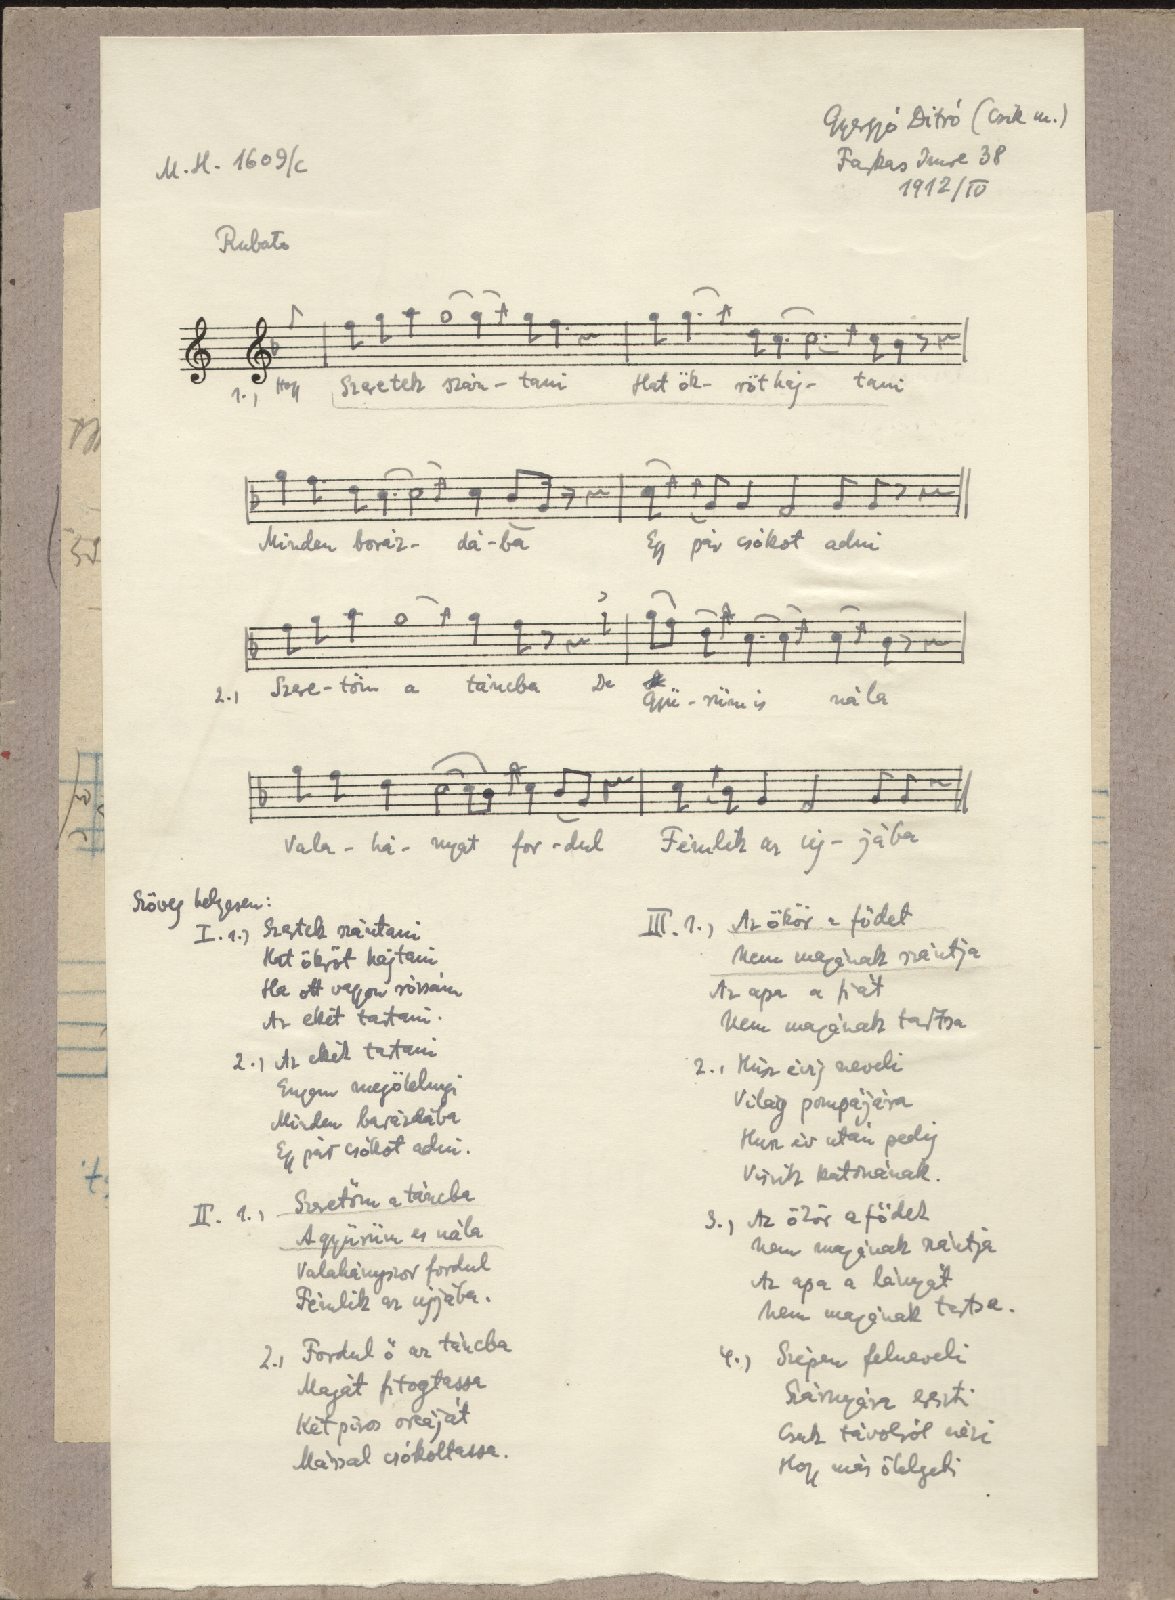 Gyergyó Ditró (Csik m.)
M.H. 1609/c
Farkas Imre 38
1912/IV
Rubato
1., Hogy Szeretek szán-tani Hat ök-röt haj-tani
Minden boráz-dá-ba Egy pár csókot adni
2., Szere-tőm a táncba De Gyű-rűm is nála
Vala-há-nyat for-dul Fémlik az uj-jába
Szöveg helyesen:
I. 1., Szeretek szántani
Hat ökröt hajtani
Ha ott vagyon rózsám
Az ekét tartani.
2., Az ekét tartani
Engem megölelnyi
Minden barázdába
Egy pár csókot adni.
II. 1., Szeretőm a táncba
A gyűrűm es nála
Valahányszor fordul
Fémlik az ujjába.
2., Fordul ő az táncba
Magát fitogtassa
Két piros orcáját
Mással csókoltassa.
III. 1., Az ökör a födet
Nem magának szántja
Az apa a fiát
Nem magának tartsa
2., Húsz évig neveli
Világ pompájára
Husz év után pedig
Viszik katonának.
3., Az ökör a födet
Nem magának szántja
Az apa a lányát
Nem magának tartsa.
4., Szépen felneveli
Szárnyára ereszti
Csak távolról nézi
Hogy más ölelgeti